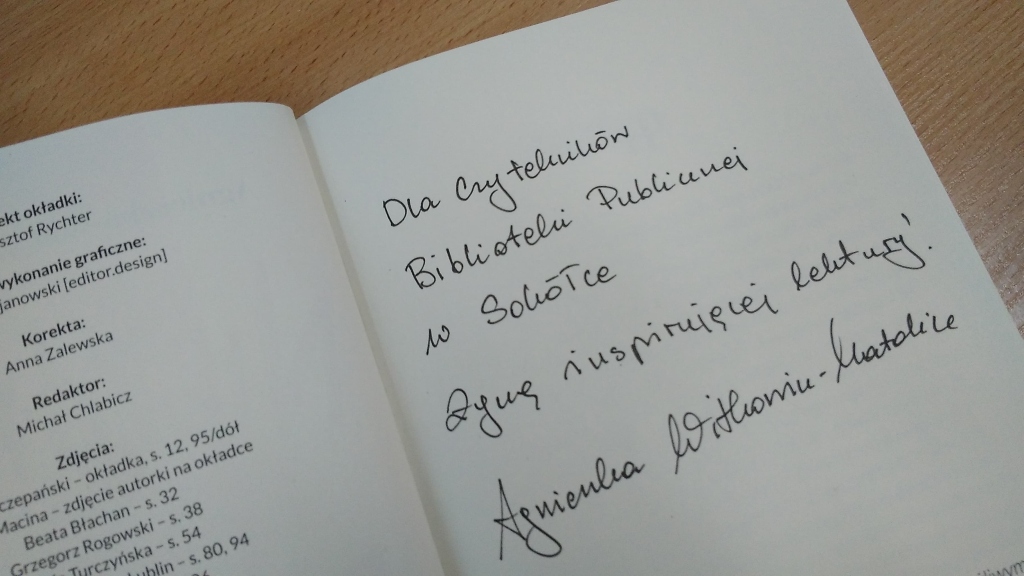 ekt okładki:
sztof Rychter
wykonanie graficzne:
janowski [editor.design]
Korekta:
Anna Zalewska
Redaktor:
Michał Chlabicz
Zdjęcia:
czepański – okładka, s. 12, 95/dół
Macina – zdjęcie autorki na okładce
Beata Błachan – s. 32
Grzegorz Rogowski – s. 38
Turczyńska – s. 54
ublin – s. 80, 94
Dla Czytelników
Biblioteki Publicznej
w Sokółce
Życzę inspirującej lektury!
Agnieszka